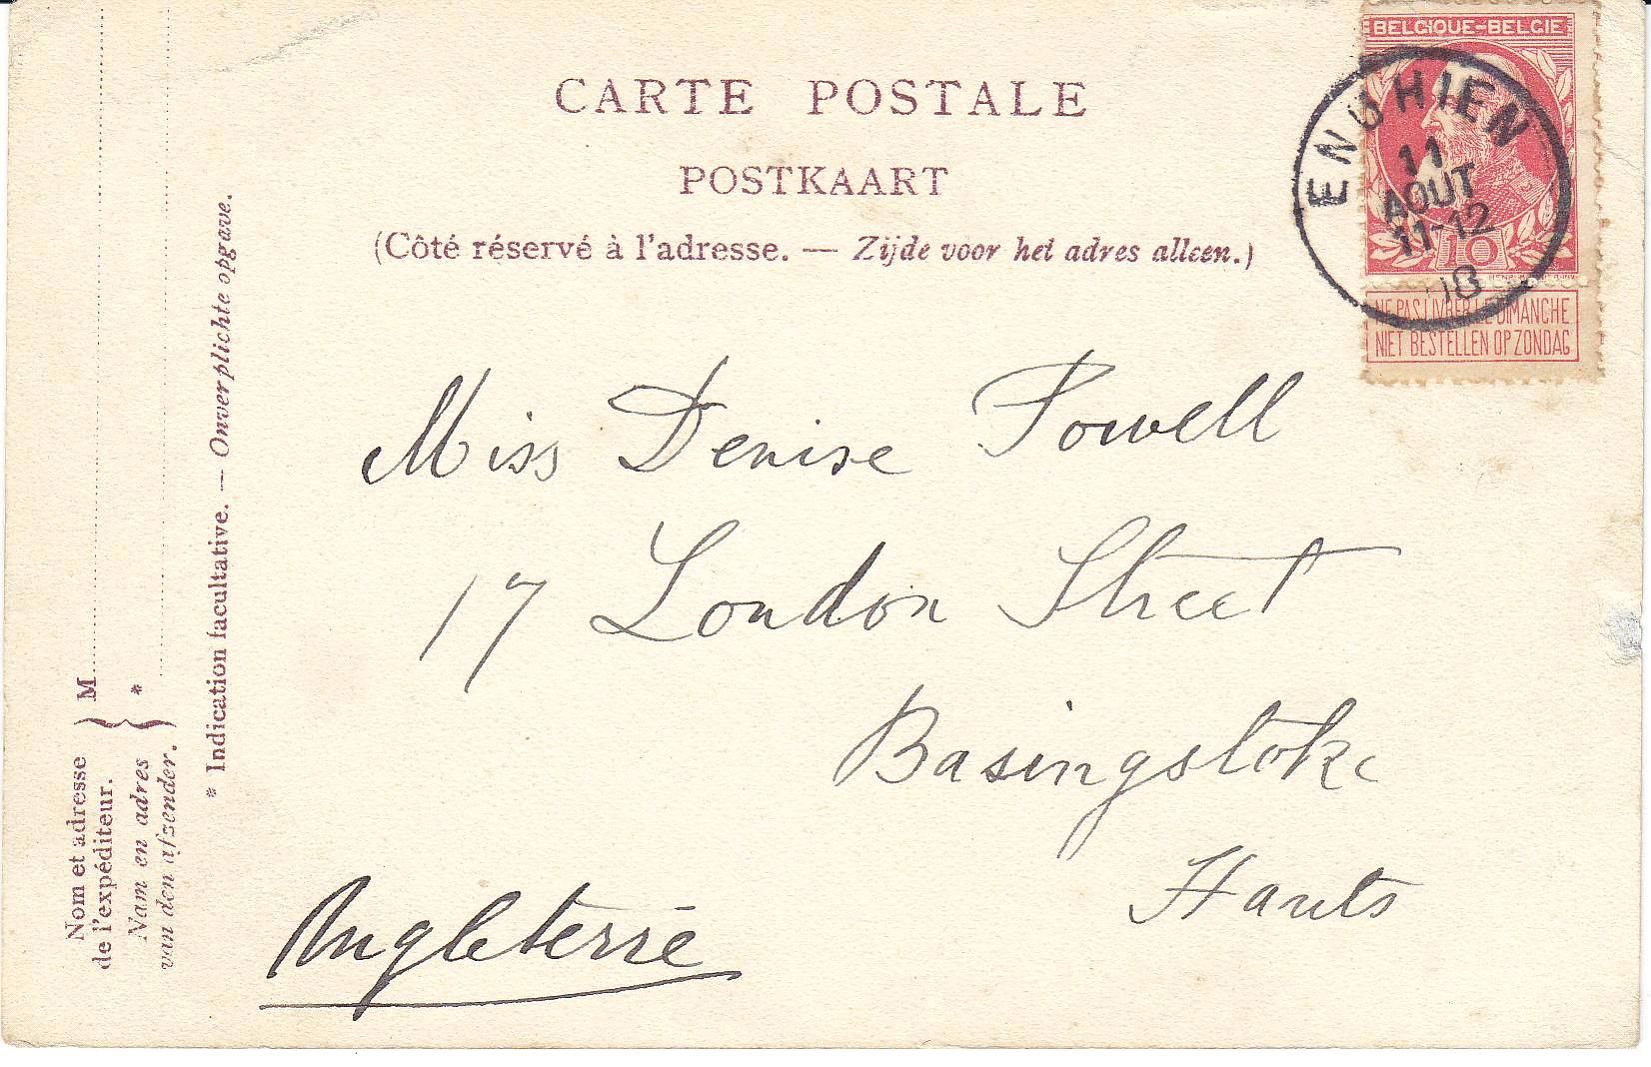 CARTE POSTALE
POSTKAART
(Côté réservé à l'adresse. — Zijde voor het adres alleen.)
BELGIQUE-BELGIE
ENGHIEN
11
AOUT
11-12
08
10
NE PAS LIVRER LE DIMANCHE
NIET BESTELLEN OP ZONDAG
Miss Denise Powell
17 London Street
Basingstoke
Hants
Angleterre
Nom et adresse
de l'expéditeur.
Nam en adres
van den afzender.
M
*
* Indication facultative. — Onverplichte opgave.